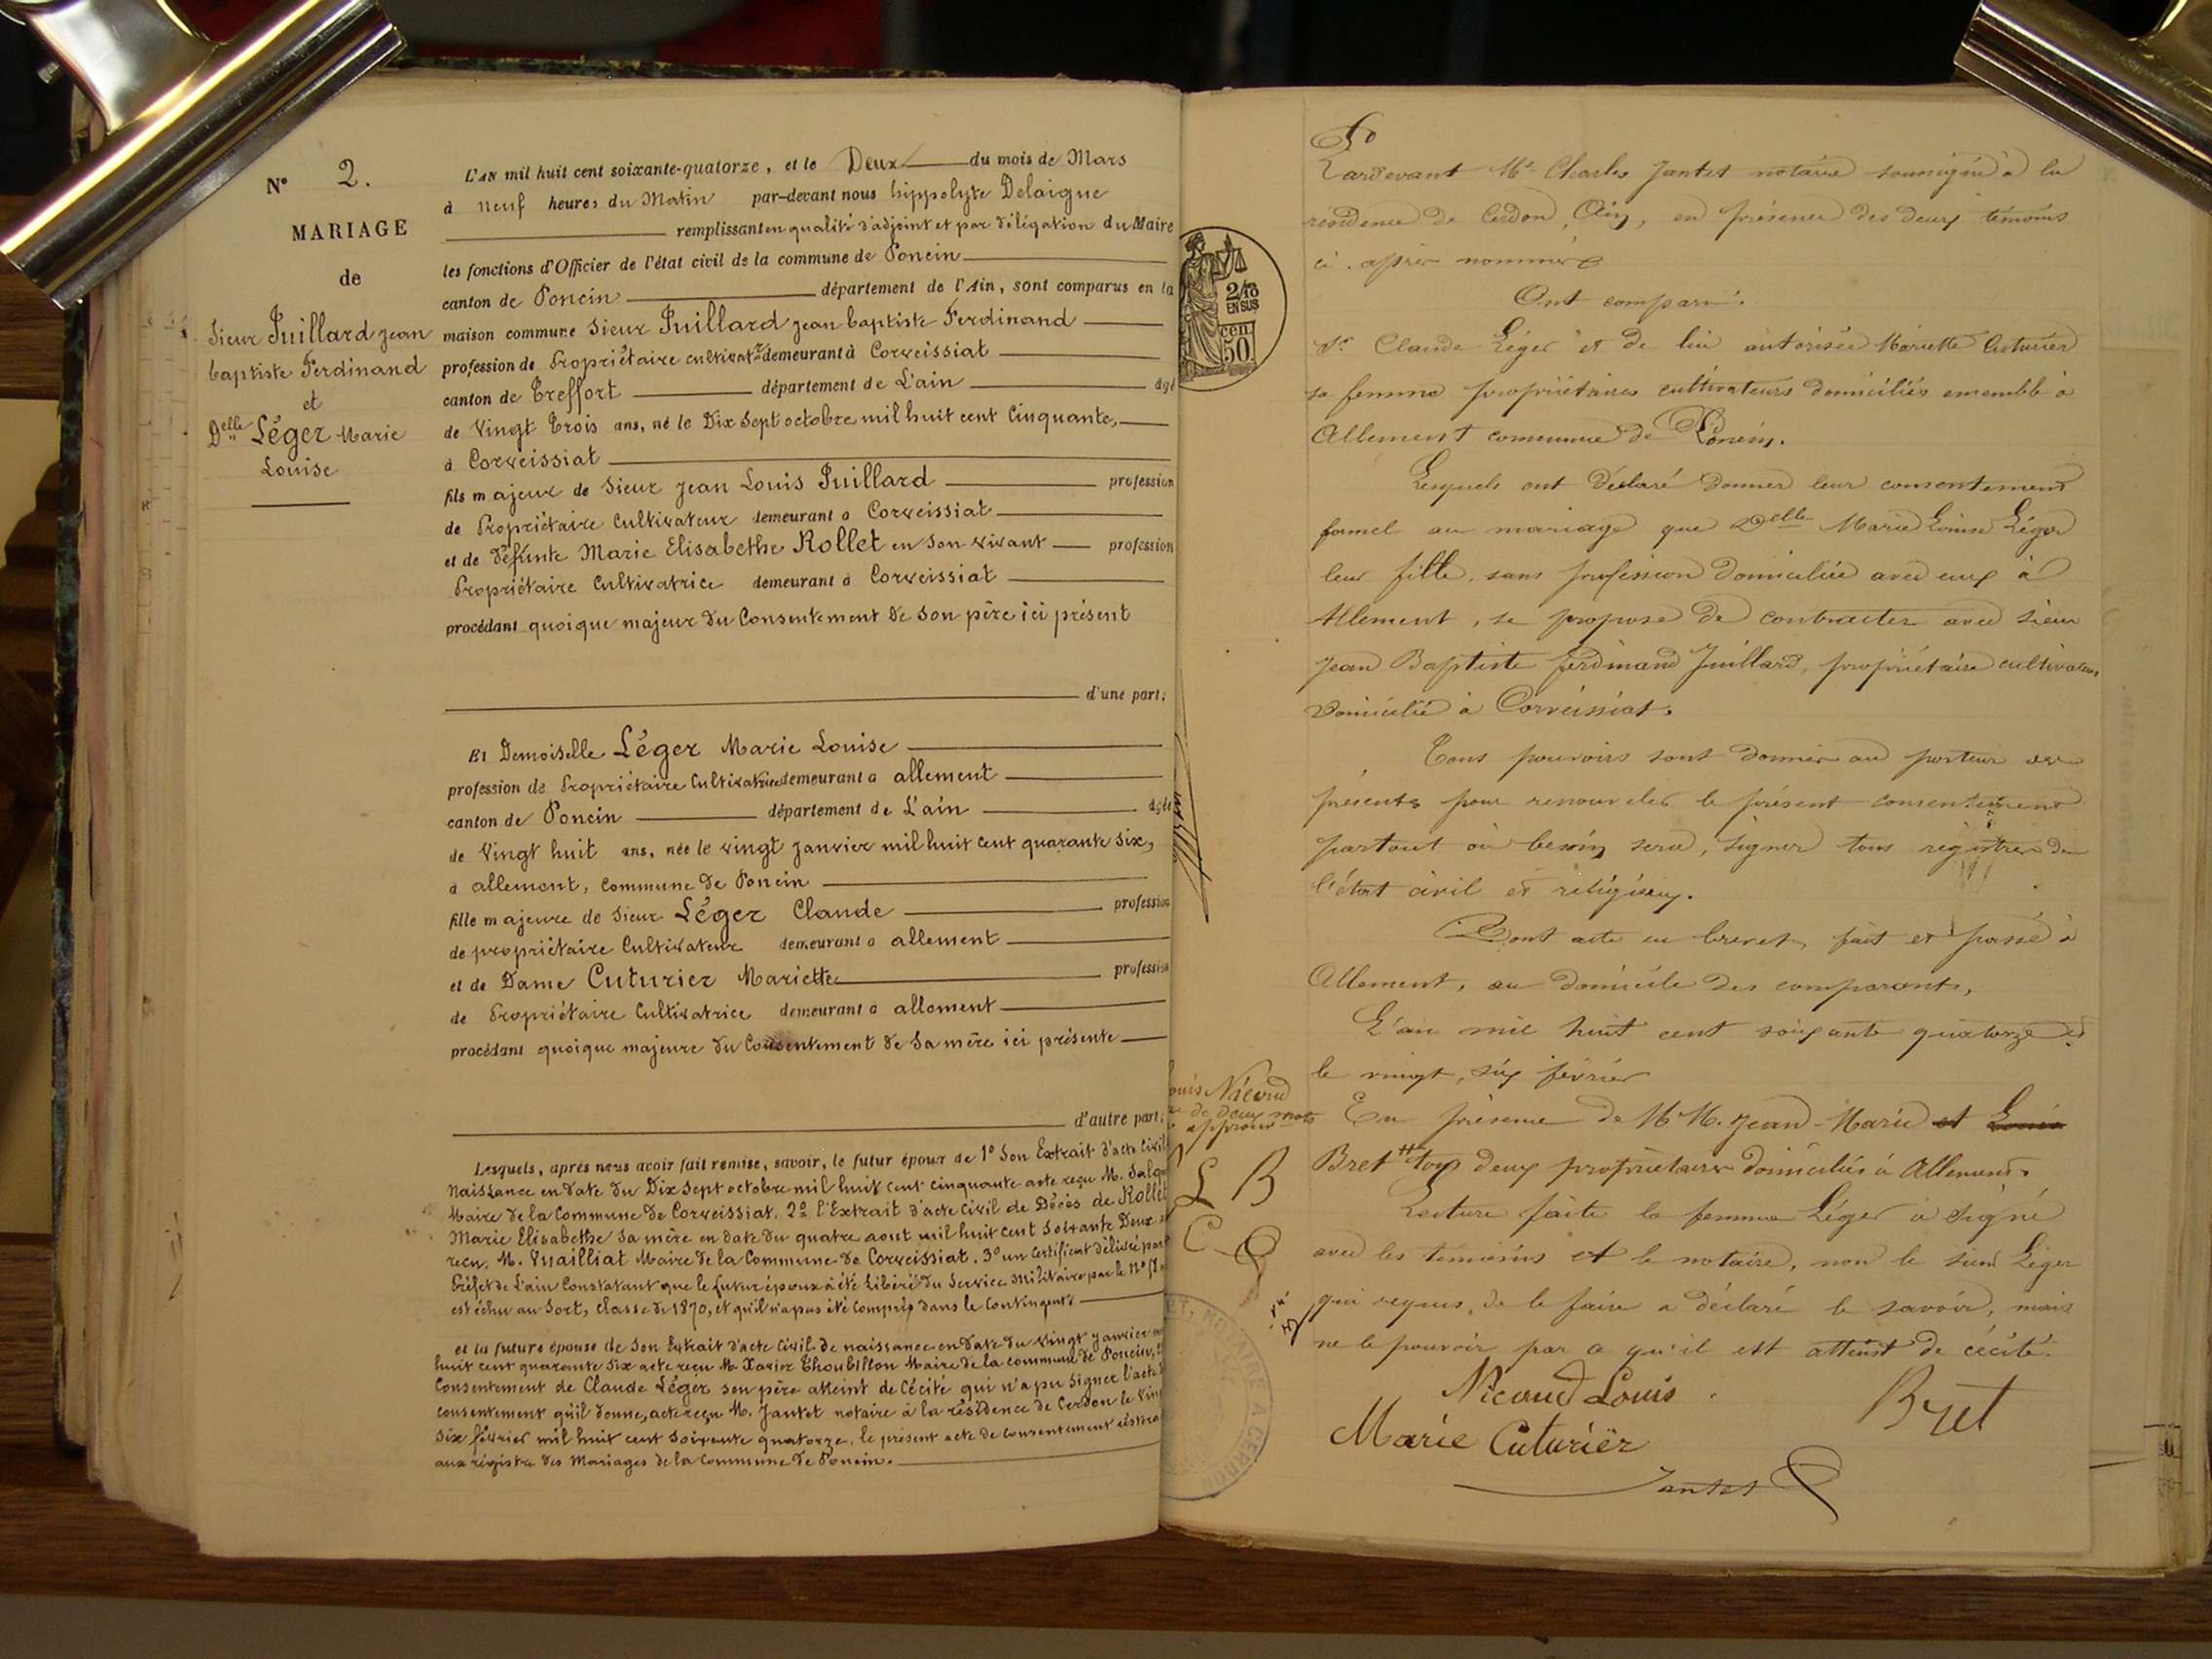 N° 2.
MARIAGE
de
Sieur Juillard Jean
baptiste Ferdinand
et
Delle Léger Marie
Louise
L'AN mil huit cent soixante-quatorze, et le Deux du mois de Mars
à neuf heures du Matin par-devant nous hippolyte Delaigue
remplissant en qualité d'adjoint et par délégation du Maire
les fonctions d'Officier de l'état civil de la commune de Poncin
canton de Poncin département de l'Ain, sont comparus en la
maison commune Sieur Juillard Jean baptiste Ferdinand
profession de Propriétaire cultivatr demeurant à Corveissiat
canton de Treffort département de L'ain âgé
de Vingt Trois ans, né le Dix Sept octobre mil huit cent Cinquante,
à Corveissiat
fils majeur de Sieur Jean Louis Juillard profession
de Propriétaire Cultivateur demeurant à Corveissiat
et de défunte Marie Elisabethe Rollet en son vivant profession
Propriétaire Cultivatrice demeurant à Corveissiat
procédant quoique majeur du Consentement de son père ici présent
d'une part;
Et Demoiselle Léger Marie Louise
profession de Propriétaire Cultivatrice demeurant à allement
canton de Poncin département de L'ain âgée
de Vingt huit ans, née le vingt Janvier mil huit cent quarante six,
à allement, Commune de Poncin
fille majeure de Sieur Léger Claude profession
de propriétaire Cultivateur demeurant à allement
et de Dame Cuturier Mariette profession
de Propriétaire Cultivatrice demeurant à allement
procédant quoique majeure du Consentement de Sa mère ici présente
d'autre part;
Lesquels, après nous avoir fait remise, savoir, le futur époux de 1° Son Extrait d'acte Civil
Naissance en date du Dix Sept octobre mil huit cent cinquante acte reçu M.
Maire de la Commune de Corveissiat. 2° l'Extrait d'acte Civil de Décès de Rollet
Marie Elisabethe Sa mère en date du quatre aout mil huit cent soixante Deux
reçu M. Vuailliat Maire de la Commune de Corveissiat. 3° un Certificat délivré par
Préfet de L'ain Constatant que le futur époux à été Libéré du Service Militaire par le N°
est échu au Sort, Classe de 1870, et qu'il n'a pas été Compris dans le Contingent
et la future épouse de Son Extrait d'acte Civil de naissance en date du vingt janvier
huit cent quarante Six acte reçu M. Xavier Thoubillon Maire de la commune de Poncin,
Consentement de Claude Léger son père atteint de Cécité qui n'a pu Signer l'acte
consentement qu'il donne, acte reçu M. Jantet notaire à la résidence de Cerdon le Vingt
Six février mil huit cent soixante quatorze, le présent acte de Consentement
aux registre des Mariages de la Commune de Poncin.
2/10
EN SUS
cen
50
Pardevant Me Charles Jantet notaire soussigné à la
résidence de Cerdon, Ain, en présence des deux témoins
ci-après nommés
Ont comparu:
Sr Claude Léger et de lui autorisée Mariette Cuturier
sa femme propriétaires cultivateurs domiciliés ensemble à
Allement commune de Poncin.
Lesquels ont déclaré donner leur consentement
formel au mariage que Delle Marie Louise Léger
leur fille, sans profession domiciliée avec eux à
Allement, se propose de contracter avec Sieur
Jean Baptiste ferdinand Juillard, propriétaire cultivateur
domicilié à Corveissiat.
Tous pouvoirs sont donnés au porteur des
présentes pour renouveler le présent consentement
partout où besoin sera, signer tous registres de
l'état civil et religieux.
Dont acte en brevet, fait et passé à
Allement, au domicile des comparants,
L'an mil huit cent soixante quatorze et
le vingt, six février
En présence de MM. Jean-Marie et Louis
Bret tous deux propriétaires domiciliés à Allement.
Lecture faite la femme Léger a signé
avec les témoins et le notaire, non le sieur Léger
qui requis, de le faire a déclaré le savoir, mais
ne le pouvoir par ce qu'il est atteint de cécité.
Louis Nicoud
de deux mots
approuvé
L B
C
NOTAIRE A CERDON
Nicoud Louis
Bret
Marie Cuturiër
Jantet